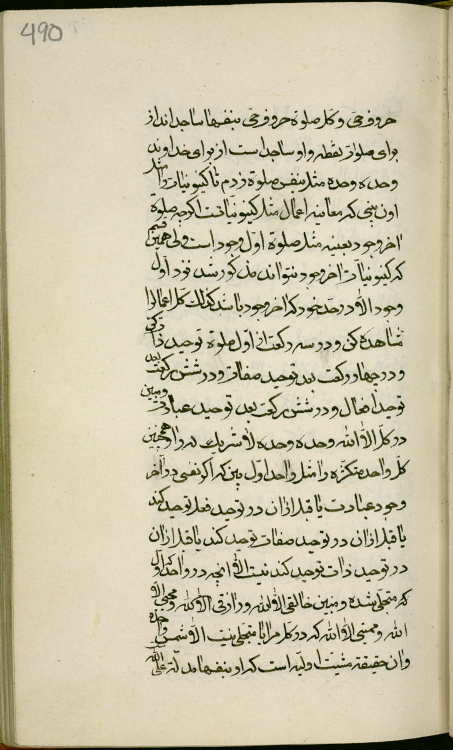 490
حروف حی و کل صلوة حروف حی بنفسها ساجد اند از
برای صلوة نقطه و او ساجد است از برای خداوند
وحده وحده مثل نفس صلوة زدم تا کینونیات را مثل
اون بینی که معاینه اعمال مثل کینونیات است اگرچه صلوة
اخر وجود بعینه مثل صلوة اول وجود است ولی همین قسم
که کینونیات اخر وجود نتواند مذکور شد نزد اول
وجود الا در حد خود که اخر وجود باشد کذلک کل اعمال را
مشاهده کن و در سه رکعت از اول صلوة توحید ذات کن
و در چهار رکعت بعد توحید صفات و در شش رکعت بعد
توحید افعال و در شش رکعت بعد توحید عبادت و مبین
در کل الا الله وحده وحده لا شریک له و همچنین
کل واحد متکثره را مثل واحد اول بین که اگر نفسی در آخر
وجود عبادت یا قبل از ان در توحید فعل توحید کند
یا قبل از ان در توحید صفات توحید کند یا قبل از ان
در توحید ذات توحید کند نیست الا انچه در واحد اول
که متجلی شده و مبین خالقی الا الله و رازقی الا الله و محیی الا
الله و ممیتی الا الله که در کل مرایا متجلی نیست الا شمس واحده
و ان حقیقة مشیت اولیه است که او بنفسها مدله علی الله